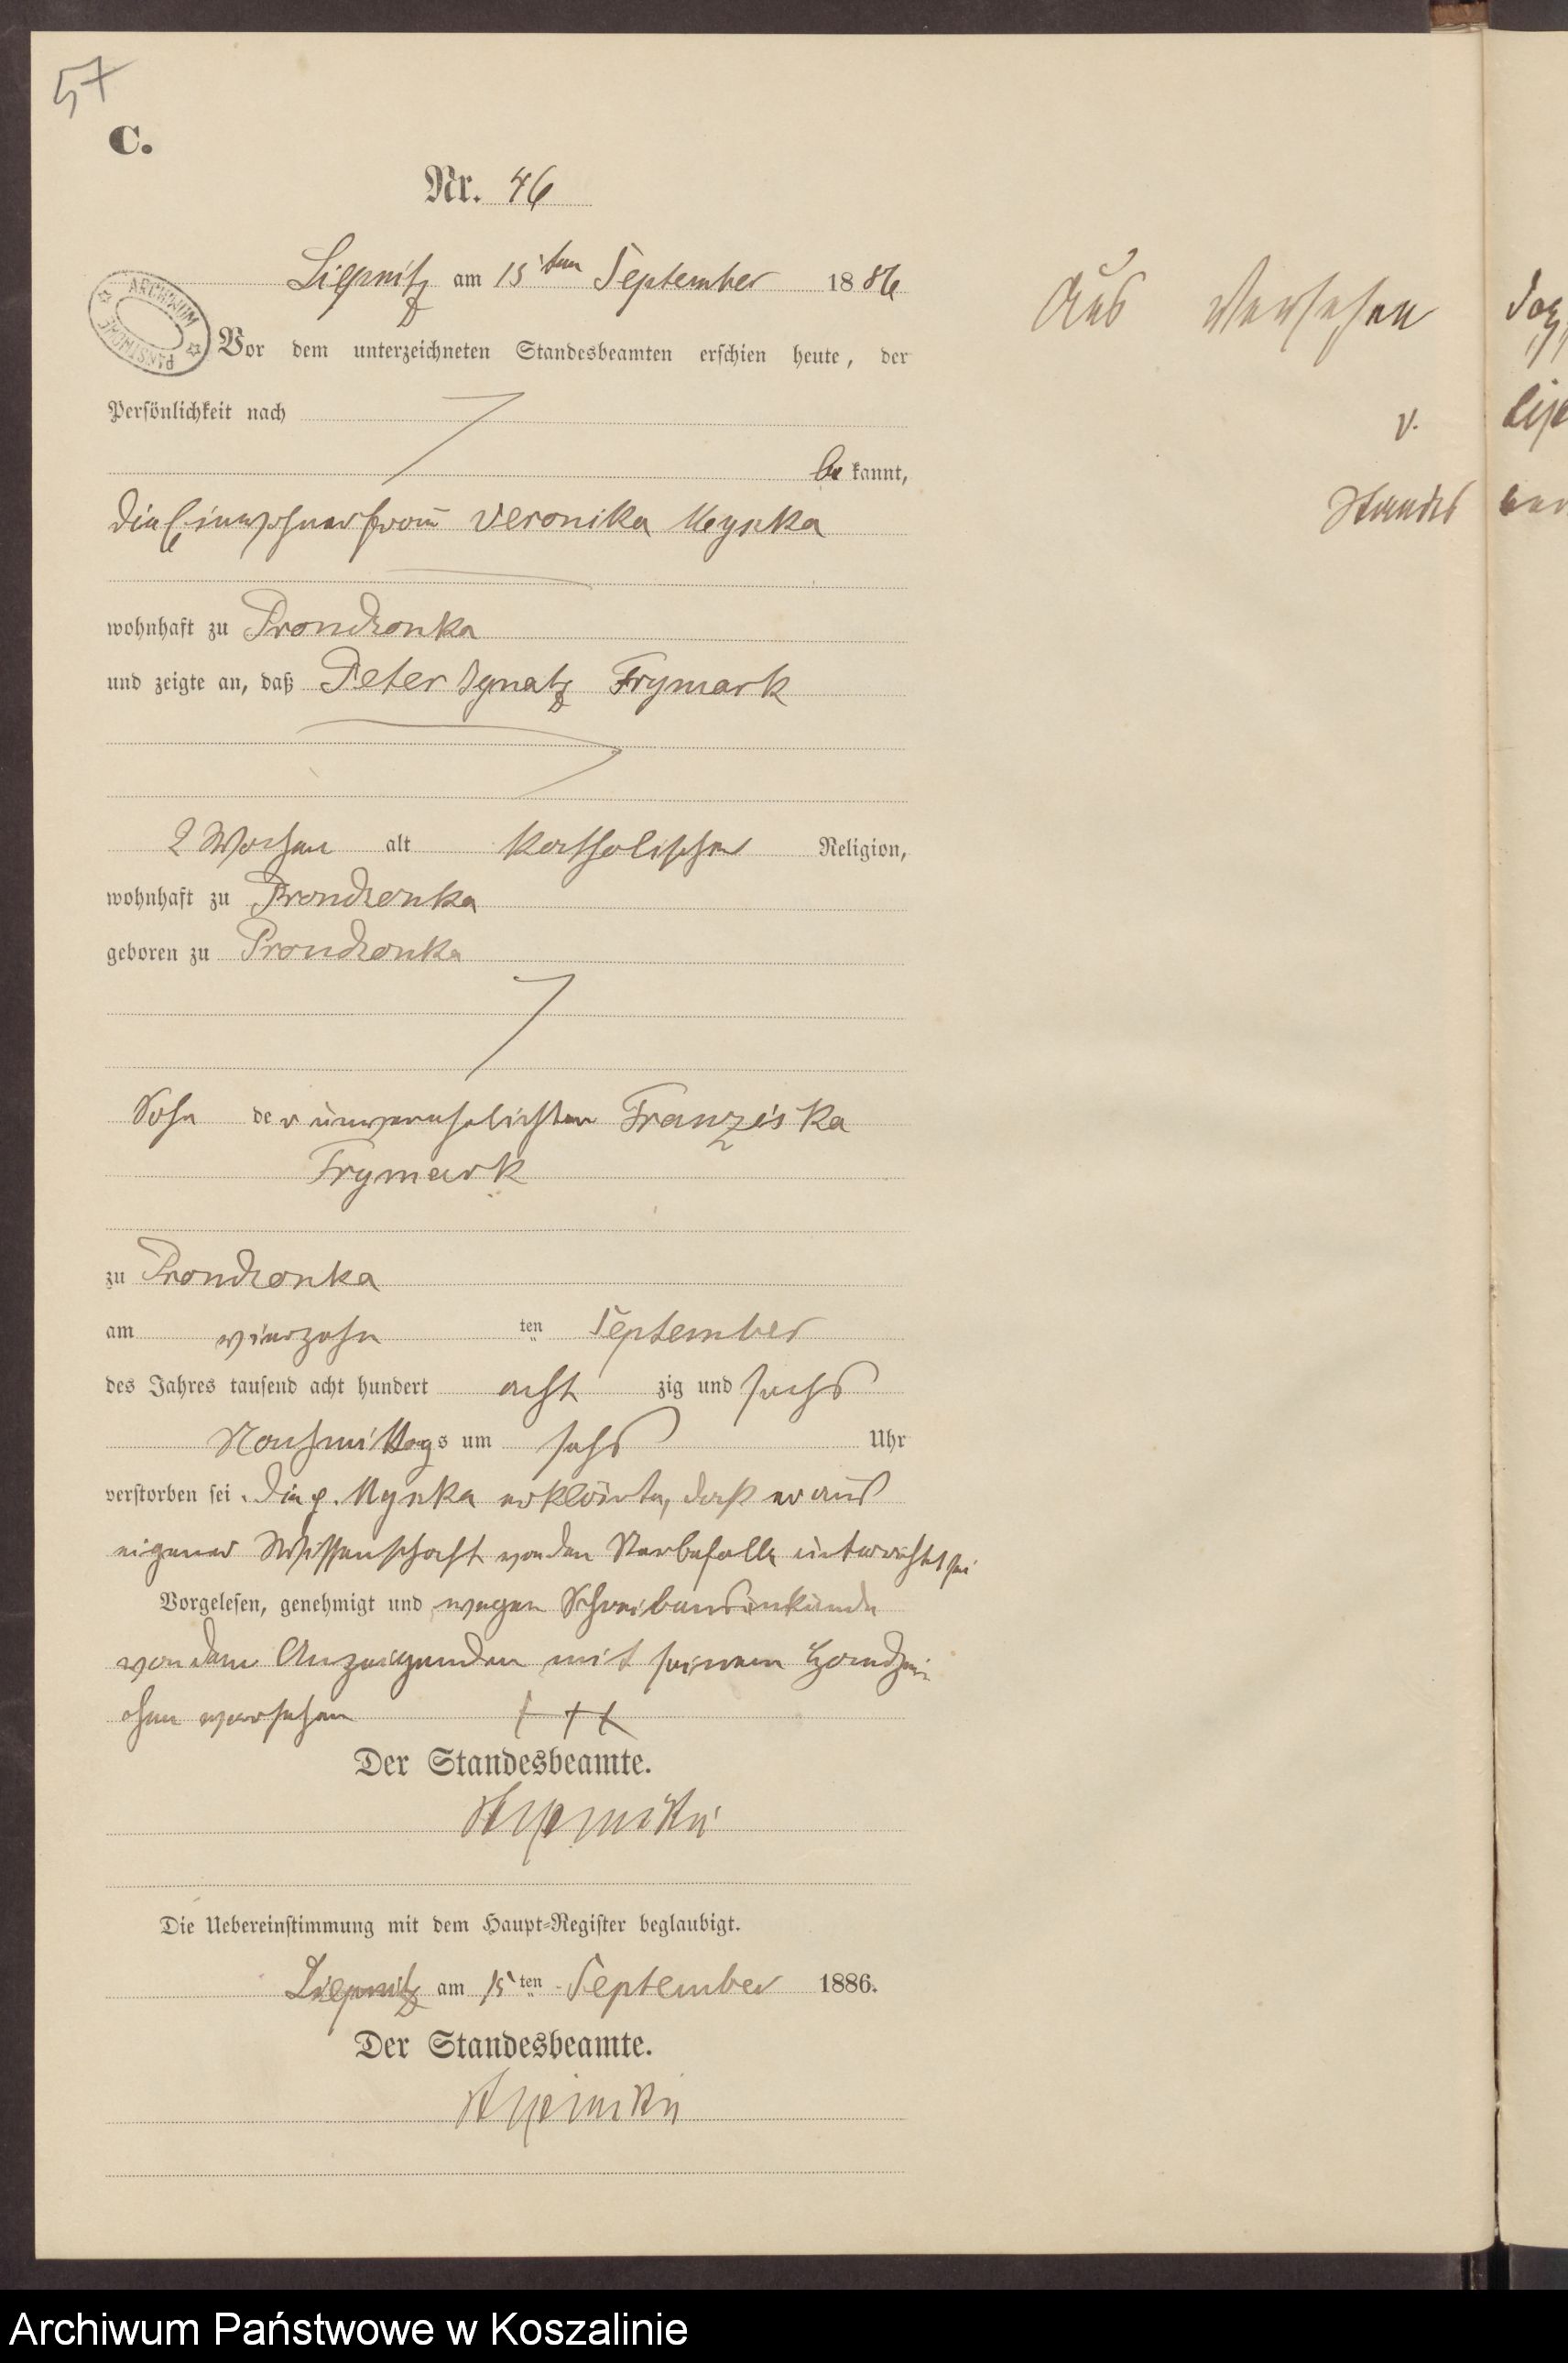 57
C.
Nr. 46
Liepnitz am 15ten September 1886
Vor dem unterzeichneten Standesbeamten erschien heute, der
Persönlichkeit nach
bekannt,
die Einwohnerfrau Veronika Mynka
wohnhaft zu Prondzonka
und zeigte an, daß Peter Ignatz Frymark
2 Wochen alt katholischer Religion,
wohnhaft zu Prondzonka
geboren zu Prondzonka
Sohn der unverehelichten Franziska
Frymark
zu Prondzonka
am vierzehn ten September
des Jahres tausend acht hundert acht zig und sechs
Nachmittags um sechs Uhr
verstorben sei. Die p. Mynka erklärte, daß er aus
eigener Wissenschaft von den Sterbefalle unterrichtet sei
Vorgelesen, genehmigt und wegen Schreibensunkunde
von dem Anzeigenden mit seinem Handzei
chen versehen +++
Der Standesbeamte.
Die Uebereinstimmung mit dem Haupt-Register beglaubigt.
Liepnitz am 15ten September 1886.
Der Standesbeamte.
Aus Versehen
v.
Standes
ARCHIWUM PAŃSTWOWE
Archiwum Państwowe w Koszalinie